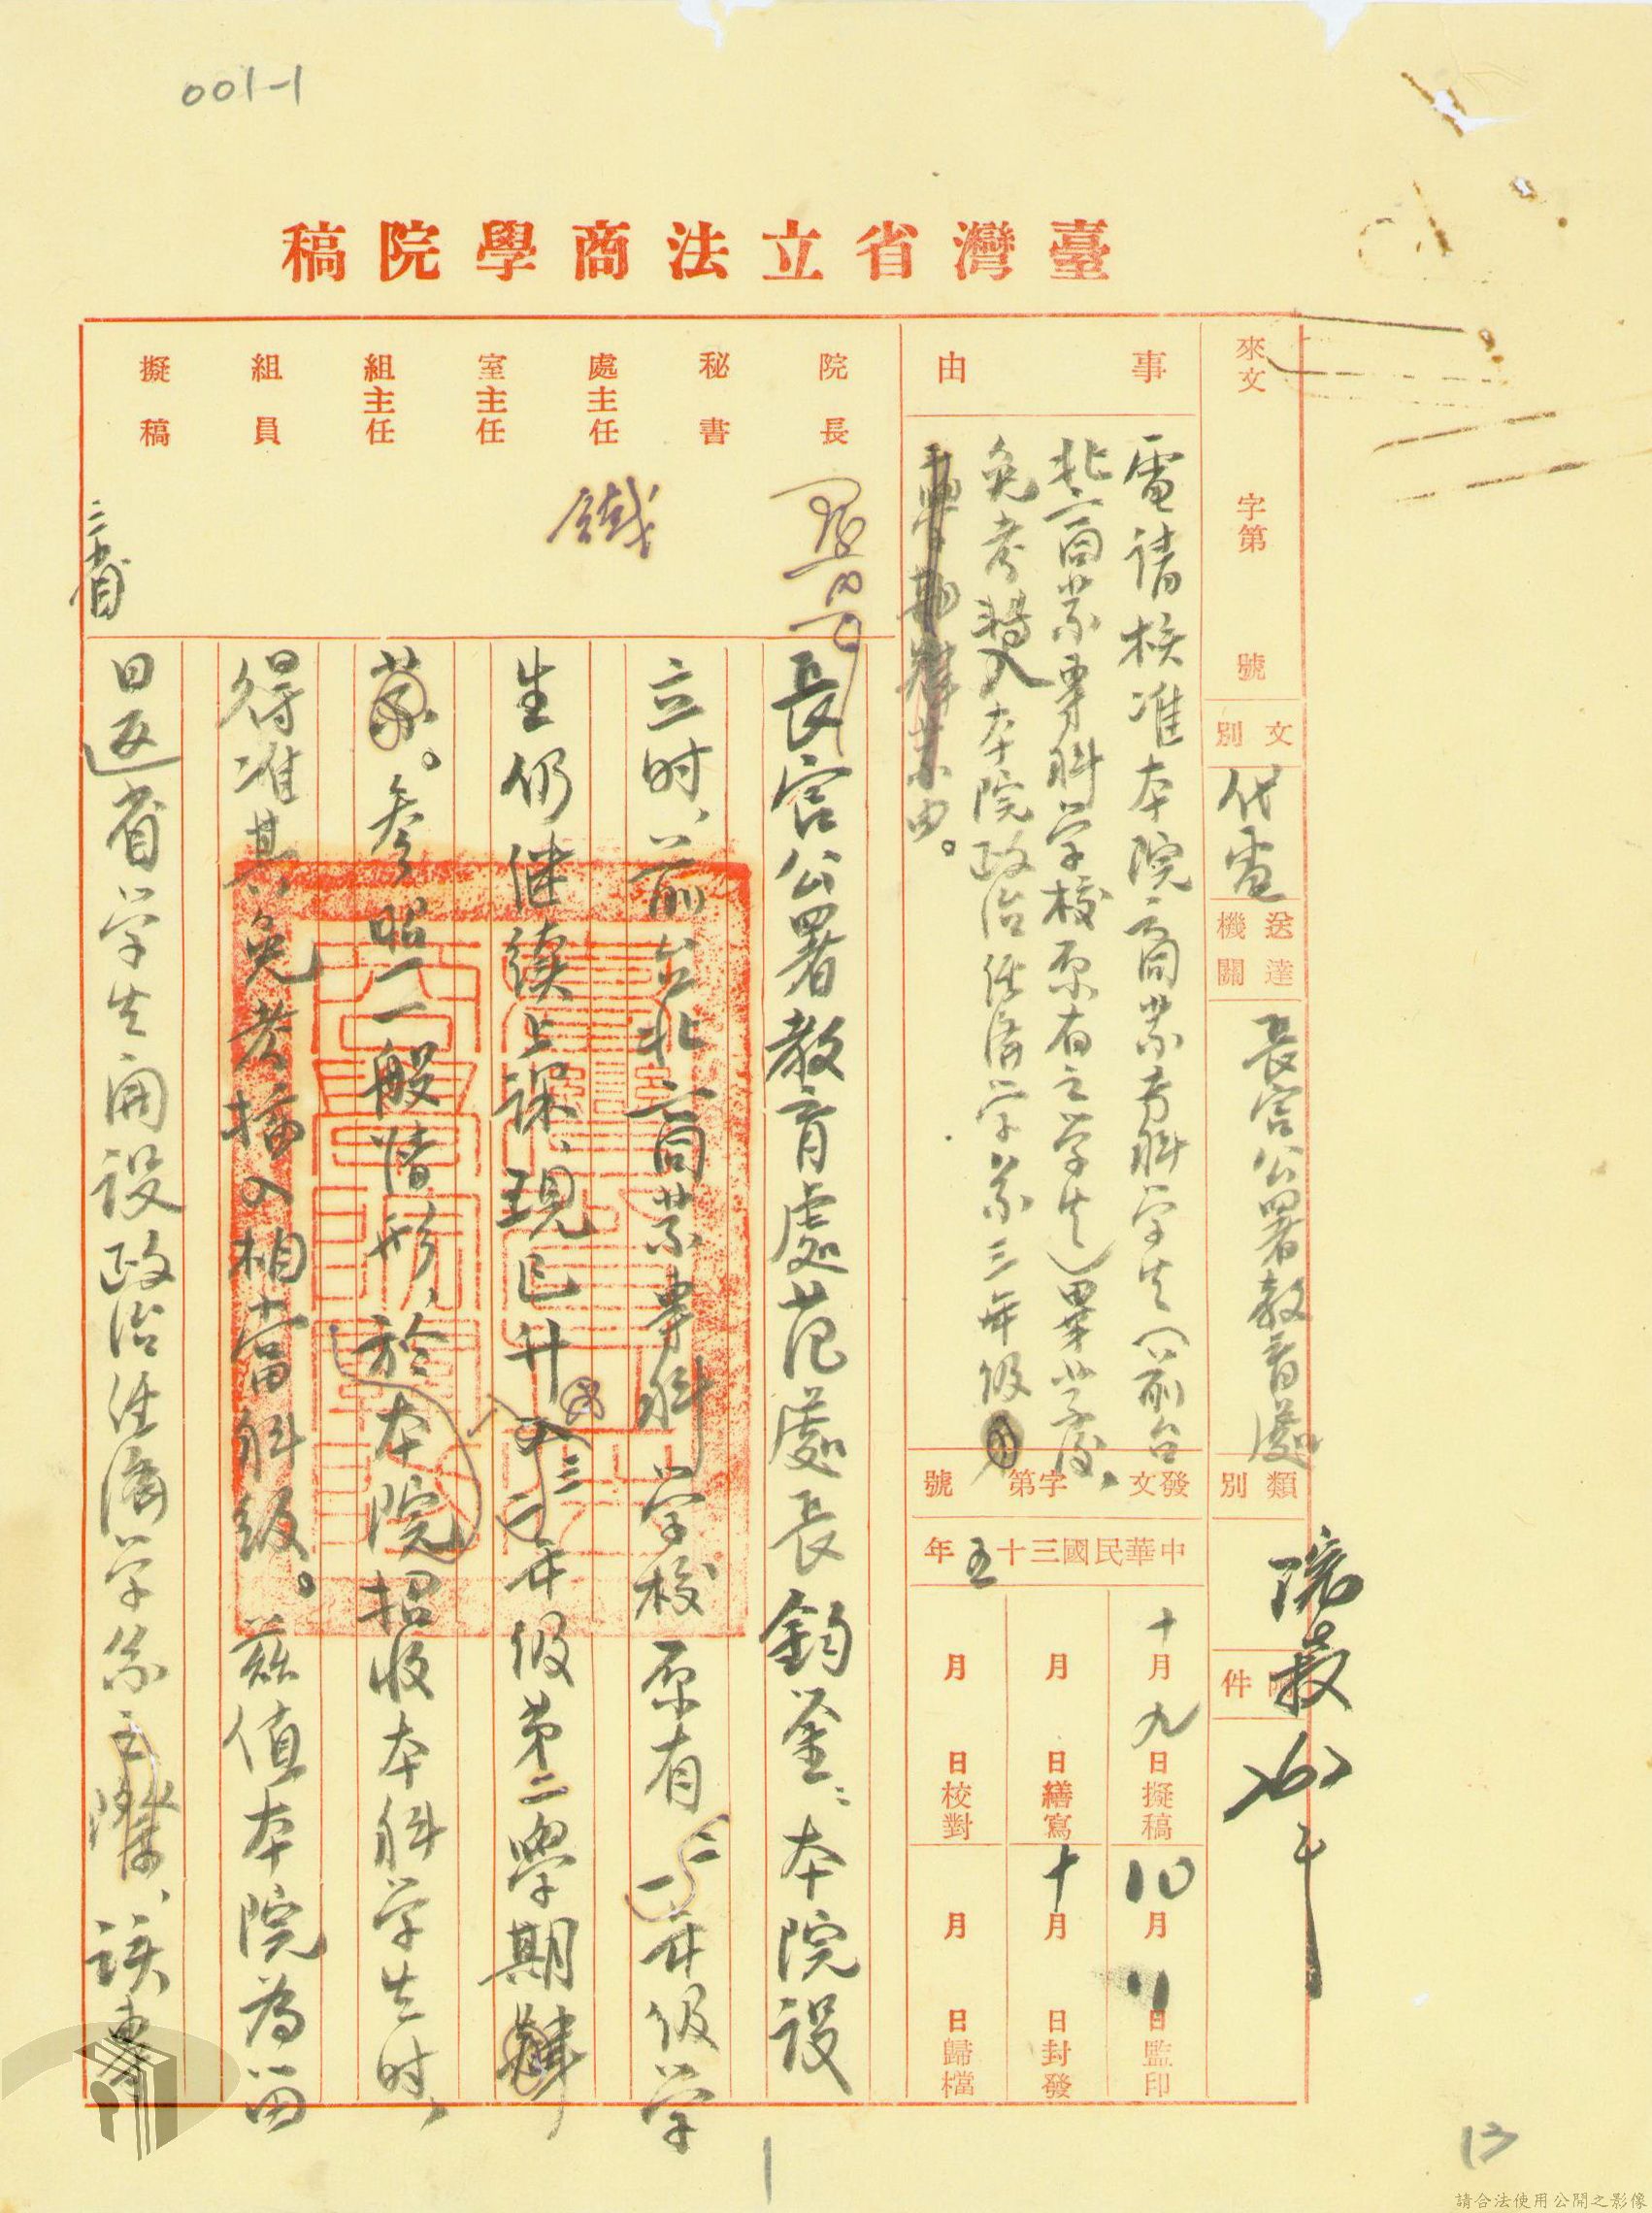 001-1
臺灣省立法商學院稿
來文
字第
號
文別
代電
送達機關
長官公署教育處
類別
附件
事由
電請核准本院商業專科学生（前台
北商業專科学校原有之学生）畢業後、
免考轉入本院政治经济学系三年級
由。
發文
字第
號
中華民國三十五年
十月九日擬稿
月
日繕寫
月
日校對
10月11日監印
十月
日封發
月
日歸檔
院長
秘書
處主任
室主任
組主任
組員
擬稿
長官公署教育處范處長鈞鉴：本院設
立时、前台北商業專科学校原有二一年级学
生仍继续上課、現已升入三二年级第二學期
。参照一般情形、於本院招收本科学生时、
得准其免考插入相當科级。兹值本院為留
日返省学生開設政治经濟学系之際、該
13
請合法使用公開之影像